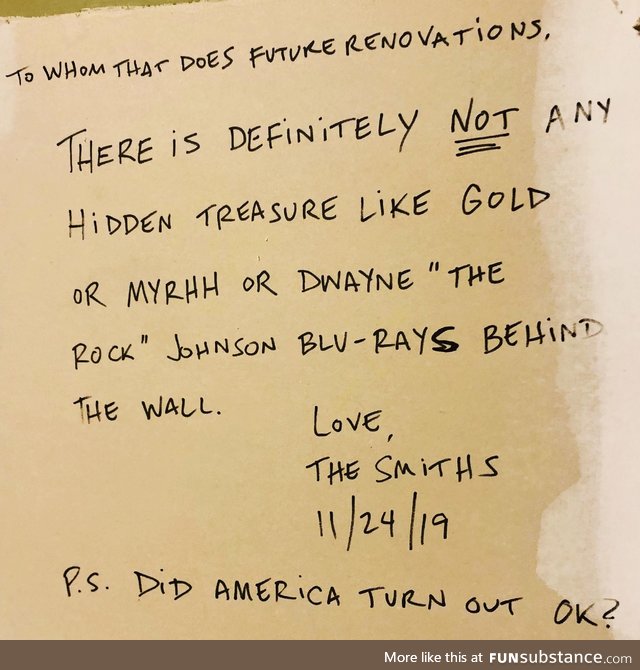 TO WHOM THAT DOES FUTURE RENOVATIONS,
THERE iS DEFiNiTELY NOT ANY
HiDDEN TREASURE LiKE GOLD
OR MYRHH OR DWAYNE "THE
ROCK" JOHNSON BLU-RAYS BEHiND
THE WALL.
LOVE,
THE SMiTHS
11/24/19
P.S. DiD AMERiCA TURN OUT OK?
More like this at FUNsubstance.com